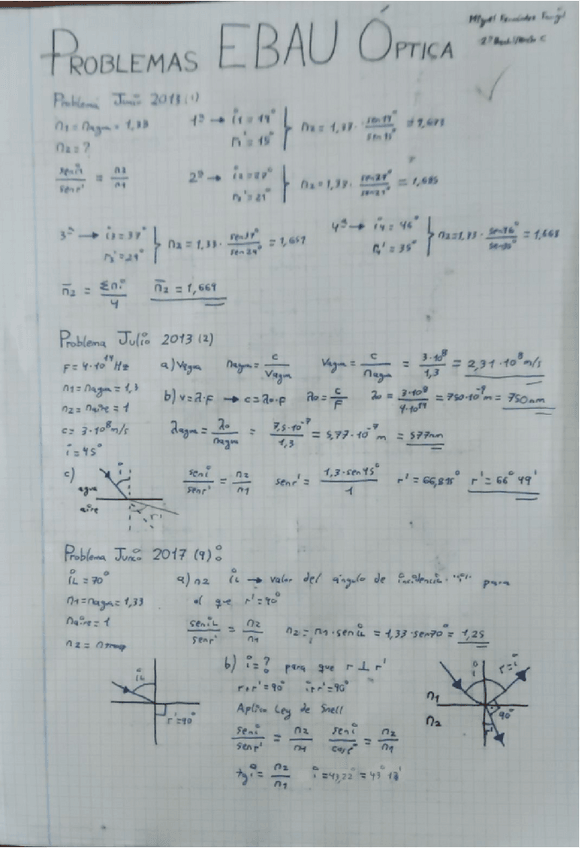 PROBLEMAS EBAU ÓPTICA
Problema Junio 2013 (1)
n1 = nagua = 1,33
n2 = ?
sen i / sen r' = n2 / n1
1º → i1 = 19º
r1' = 15º
2º →
r2' = 21º
3º → i3 = 37º
r3' = 29º
n2 = 1,33 · sen37º / sen29º = 1,651
4º → i4 = 46º
r4' = 35º
n̄2 = Σni / 4 n̄2 = 1,669
Problema Julio 2013 (2)
F = 4·10¹⁴ Hz
n1 = nagua = 1,3
n2 = naire = 1
c = 3·10⁸ m/s
i = 45º
a) Vagua nagua = c / Vagua Vagua = c / nagua = 3·10⁸ / 1,3 = 2,31·10⁸ m/s
b) v = λ·F → c = λ0·F λ0 = c / F λ0 = 3·10⁸ / 4·10¹⁴ = 750·10⁻⁹ m = 750nm
λagua = λ0 / nagua = 7,5·10⁻⁷ / 1,3 = 5,77·10⁻⁷ m = 577nm
c)
i
agua
aire
r'
sen i / sen r' = n2 / n1 sen r' = 1,3·sen45º / 1 r' = 66,815º r' = 66º 49'
Problema Junio 2017 (9):
iL = 70º
n1 = nagua = 1,33
naire = 1
a) n2 iL → valor del ángulo de incidencia "i" para
el que r' = 90º
sen iL / sen r' = n2 / n1 n2 = n1·sen iL = 1,33·sen70º = 1,25
b) i = ? para que r ⊥ r'
r + r' = 90º i + r' = 90º
Aplico Ley de Snell
sen i / sen r' = n2 / n1
tg i = n2 / n1 i = 43,22º = 43º 13'
iL
r' = 90º
i
r = i
n1
n2
90º